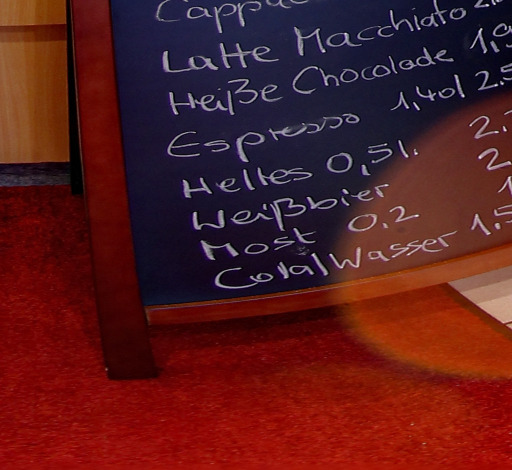 Latte Macchiato
Heiße Chocolade 1,9
Espresso 1,40l 2.5
Helles 0,5l. 2.
Weißbier 2.
Most 0,2 1
Cola/Wasser 1.5